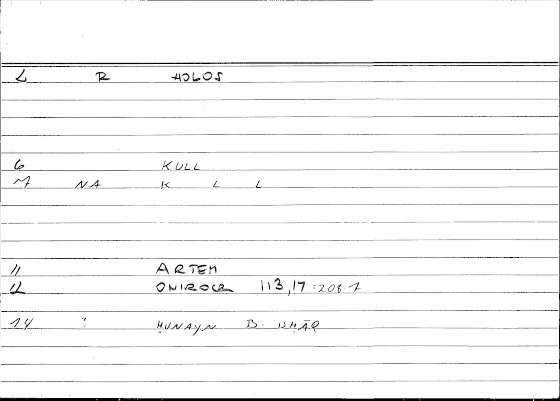 2 R HOLOS
6 KULL
7 NA K L L
11 ARTEM
12 ONIROCR 113,17 = 208 1
14 ? ḤUNAYN B. ISḤĀQ